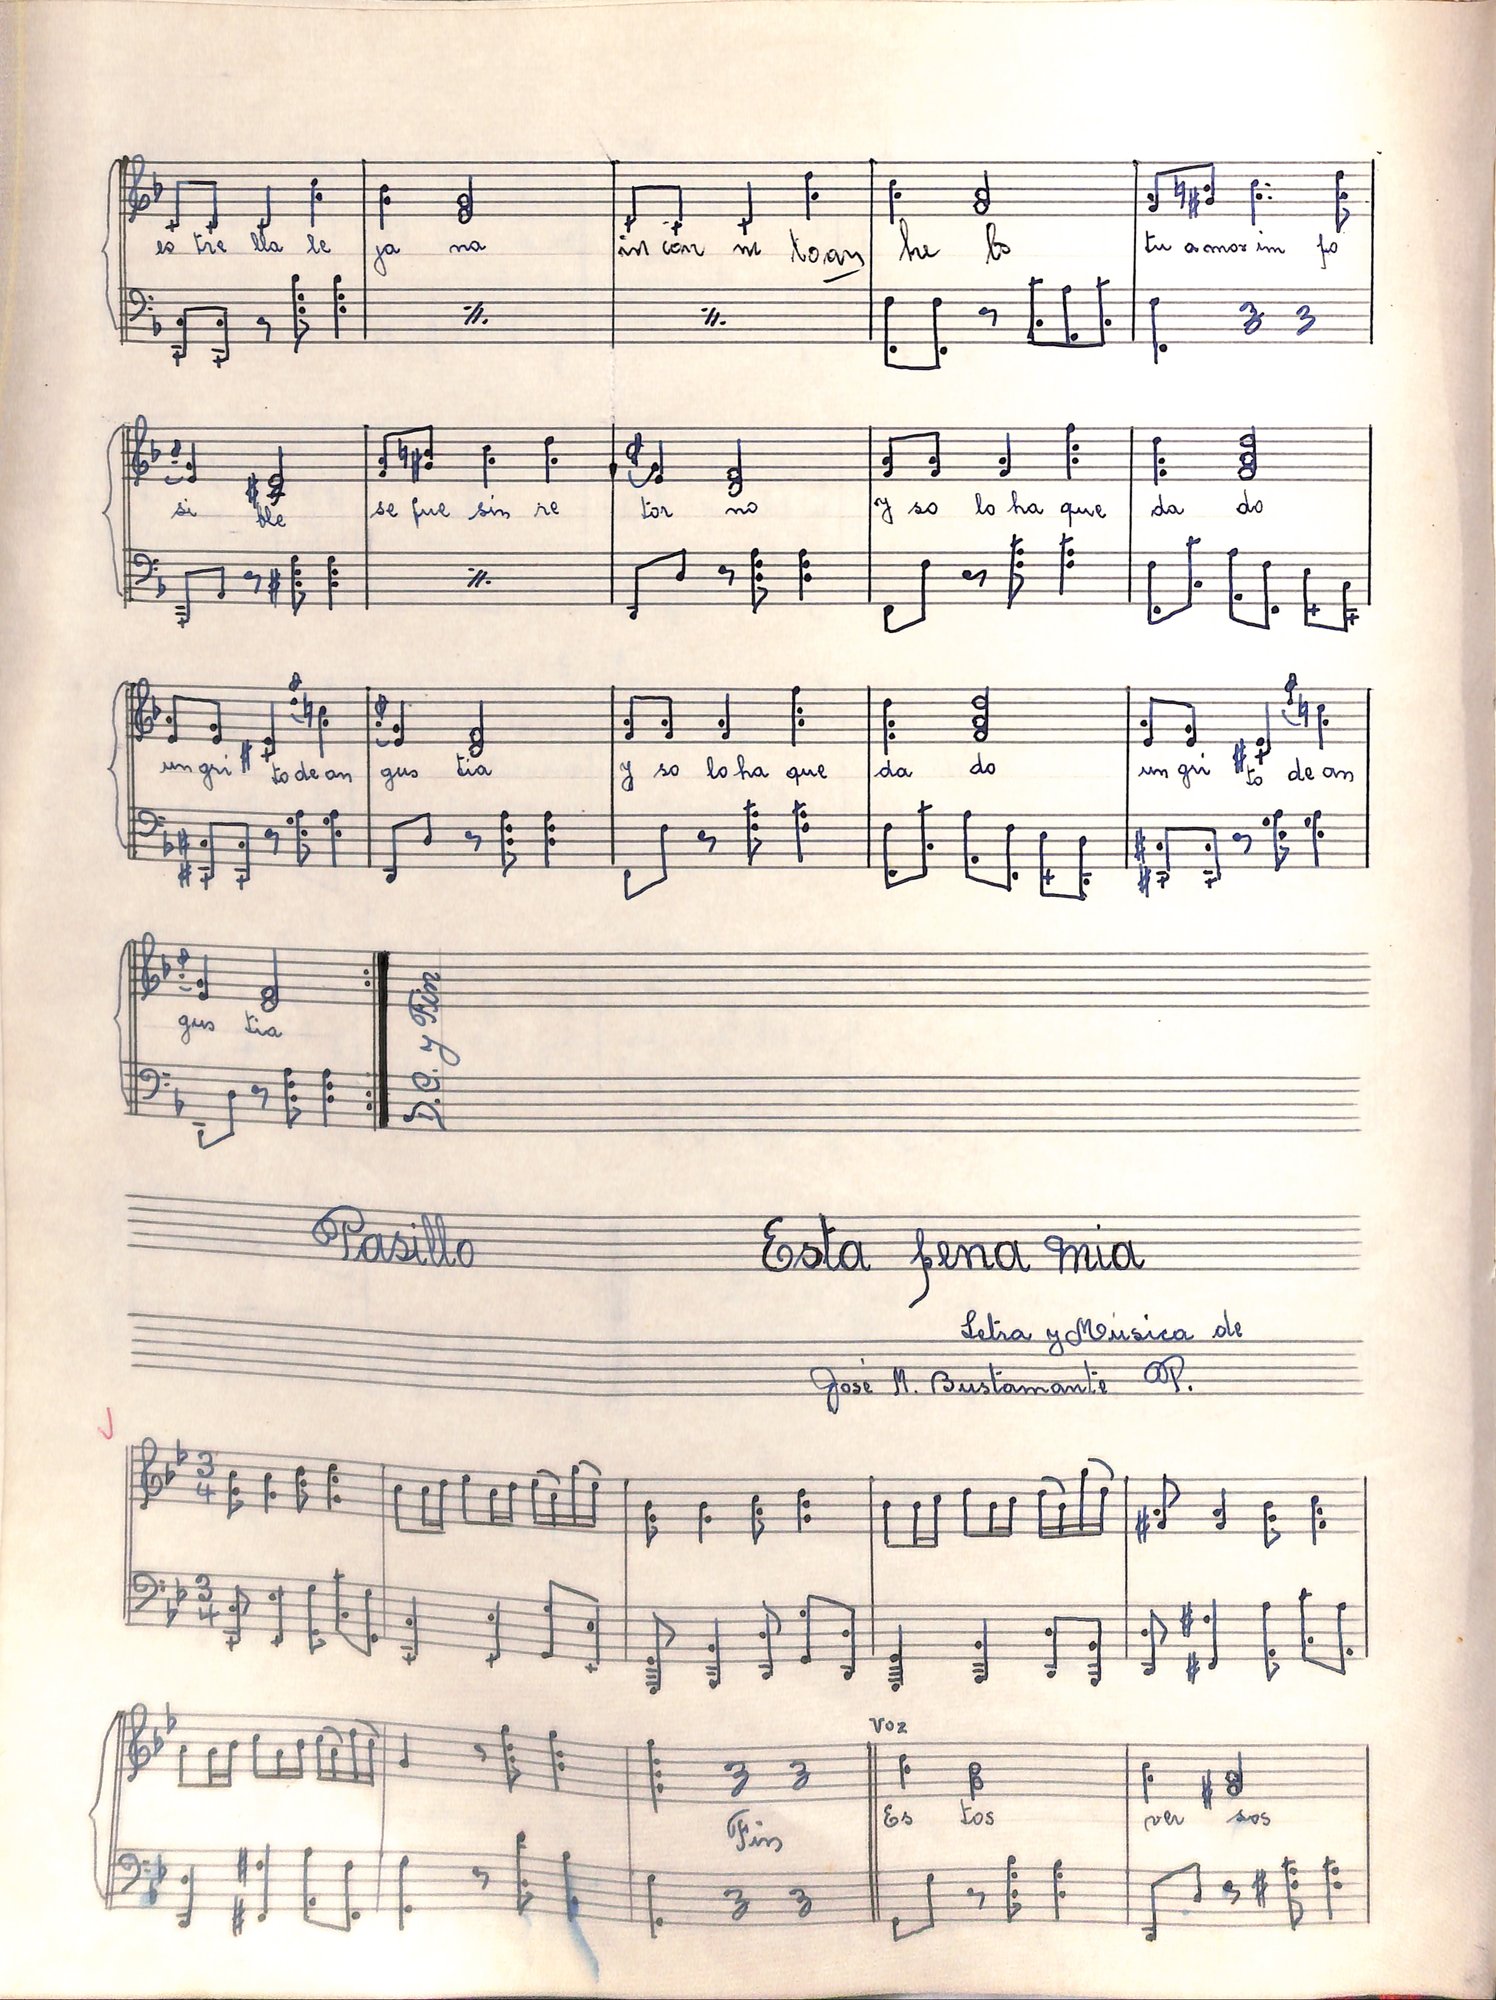 es tre lla le ja na in con ni to an he lo tu a mor im po
si ble se fue sin re tor no y so lo ha que da do
un gri to de an gus tia y so lo ha que da do un gri to de an
gus tia
D.C. y Fin
Pasillo Esta pena mia
Letra y Música de
José M. Bustamante P.
3 4
3 4
Voz
Es tos ver sos
Fin